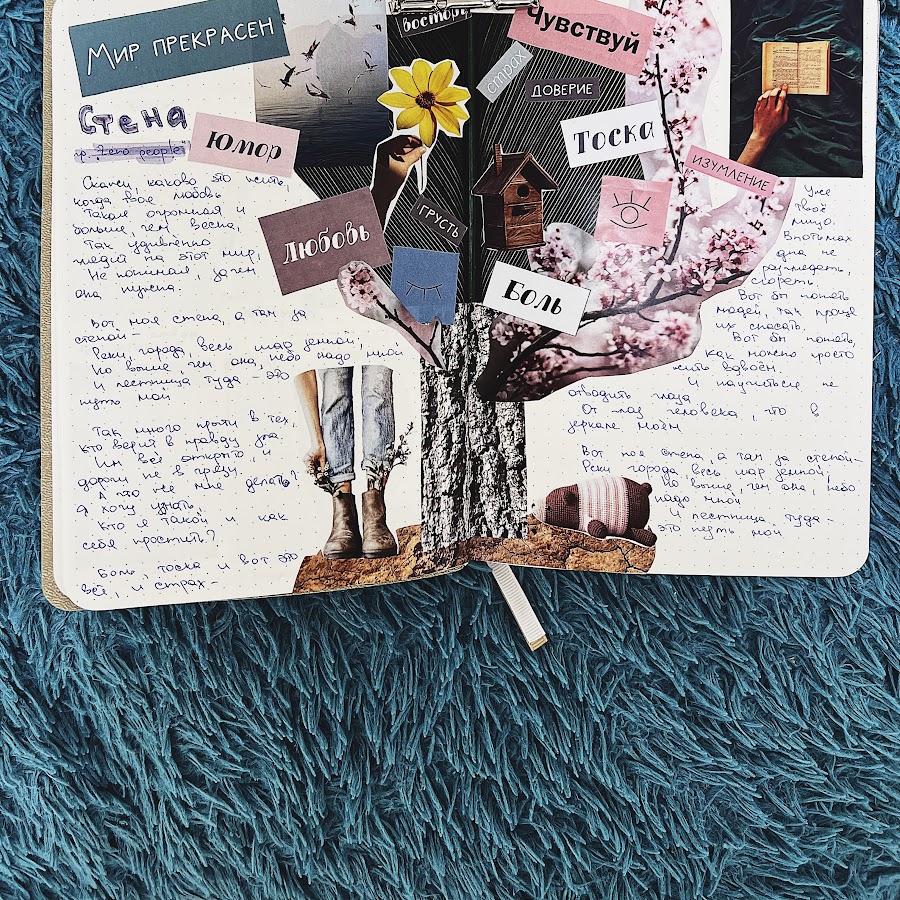 Мир прекрасен
Стена
р. "Zero people"
Юмор
Скажи, каково это жить,
когда твоя любовь
Такая огромная и
больше, чем весна,
Так удивлённо
глядел на этот мир,
Не понимая, зачем
она нужна.
Вот моя стена, а там за
стеной -
Реки, города, весь шар земной,
Но выше, чем она, небо надо мной
И лестница туда - это
путь мой
Так много прочти в тех,
кто верит в правду зла.
Им всё открыто, и
дороги не в пред.
А что же мне делать?
Я хочу узнать,
Кто я такой и как
себя простить?
Боль, тоска и вот это
всё, и страх -
Восторг
Чувствуй
Страх
Доверие
Тоска
Изумление
Грусть
Любовь
Боль
Уже
твоё
лицо.
Впотьмах
дна не
разглядеть,
сгореть
Вот бы понять
людей, так проще
их спасать.
Вот бы понять,
как можно просто
жить вдвоём.
И научиться не
отводить глаза
От глаз человека, что в
зеркале моём
Вот моя стена, а там за стеной -
Реки города весь шар земной,
Но выше, чем она, небо
надо мной
И лестница туда -
это путь мой